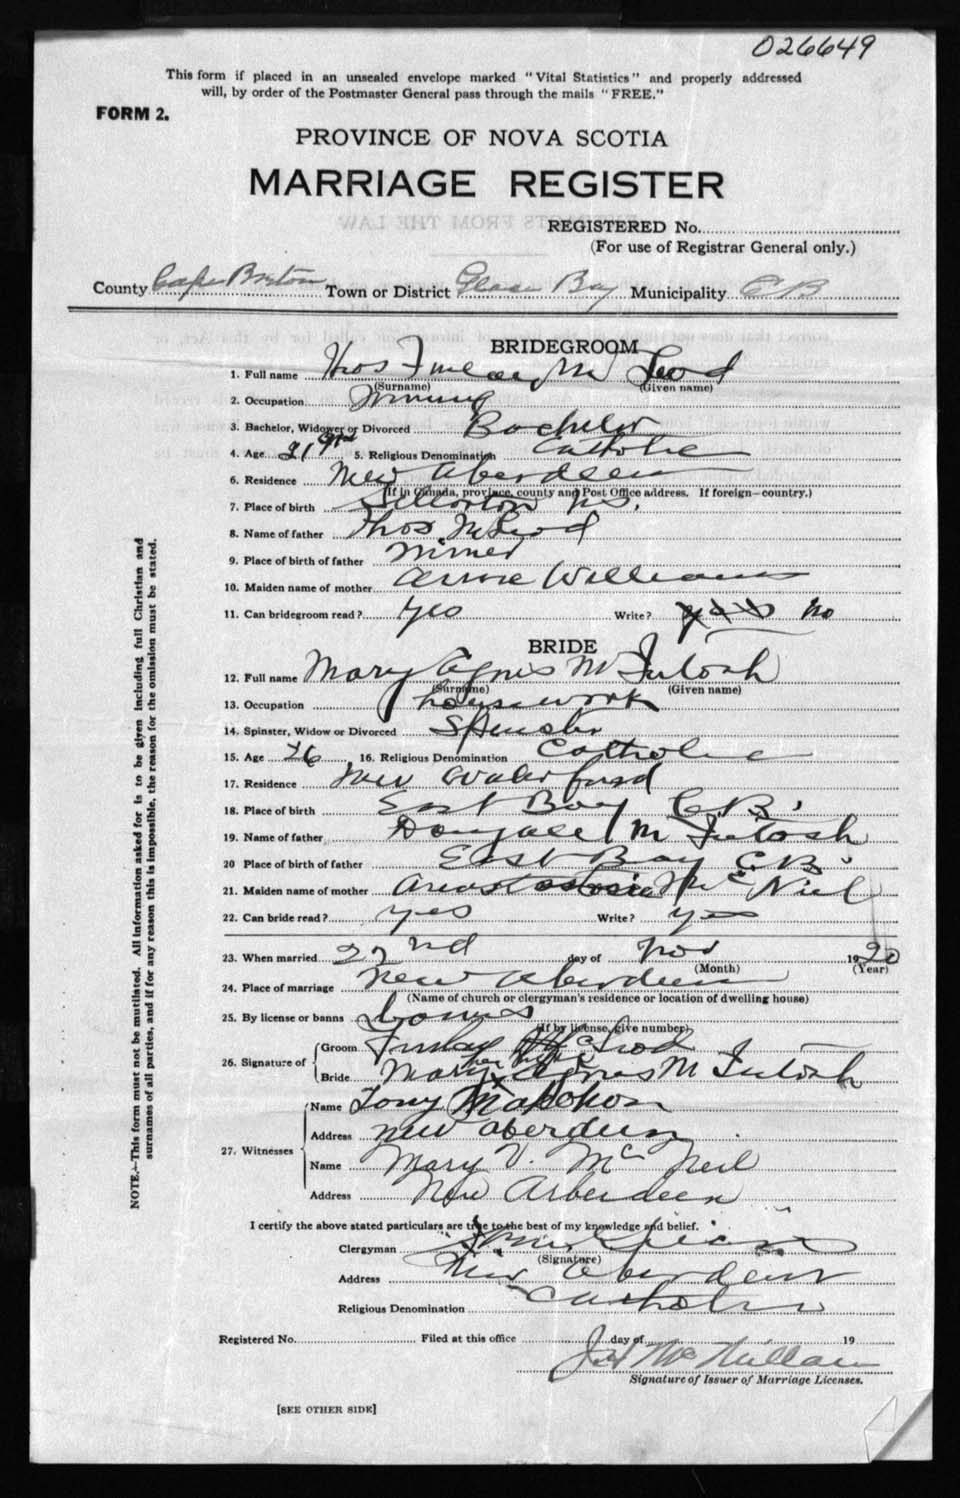 026649
This form if placed in an unsealed envelope marked "Vital Statistics" and properly addressed
will, by order of the Postmaster General pass through the mails "FREE."
FORM 2.
PROVINCE OF NOVA SCOTIA
MARRIAGE REGISTER
REGISTERED No.
(For use of Registrar General only.)
County Cape Breton Town or District Glace Bay Municipality C B
BRIDEGROOM
1. Full name Thos Finlay Mc Leod
(Surname) (Given name)
2. Occupation Mining
3. Bachelor, Widower or Divorced Bachelor
4. Age 21 5. Religious Denomination Catholic
6. Residence New Aberdeen
(If in Canada, province, county and Post Office address. If foreign—country.)
7. Place of birth Stellarton N.S.
8. Name of father Thos McLeod
9. Place of birth of father Miner
10. Maiden name of mother Annie Williams
11. Can bridegroom read? Yes Write? yes No
BRIDE
12. Full name Mary Agnes Mc Intosh
(Surname) (Given name)
13. Occupation housework
14. Spinster, Widow or Divorced Spinster
15. Age 26 16. Religious Denomination Catholic
17. Residence New Waterford
18. Place of birth East Bay C.B.
19. Name of father Dougall Mc Intosh
20 Place of birth of father East Bay C.B.
21. Maiden name of mother Mc Niel
22. Can bride read? yes Write? yes
23. When married 22nd day of Nov 1920
(Month) (Year)
24. Place of marriage New Aberdeen
(Name of church or clergyman's residence or location of dwelling house)
25. By license or banns banns
(If by license, give number)
26. Signature of Groom Finlay McLeod
Bride Mary Agnes Mc Intosh
27. Witnesses
Name Tony
Address New Aberdeen
Name Mary V. McNeil
Address New Arberdeen
I certify the above stated particulars are true to the best of my knowledge and belief.
Clergyman
(Signature)
Address New Aberdeen
Religious Denomination Catholic
Registered No. Filed at this office day of 19
McMillan
Signature of Issuer of Marriage Licenses.
[SEE OTHER SIDE]
NOTE.—This form must not be mutilated. All information asked for is to be given including full Christian and
surnames of all parties, and if for any reason this is impossible, the reason for the omission must be stated.